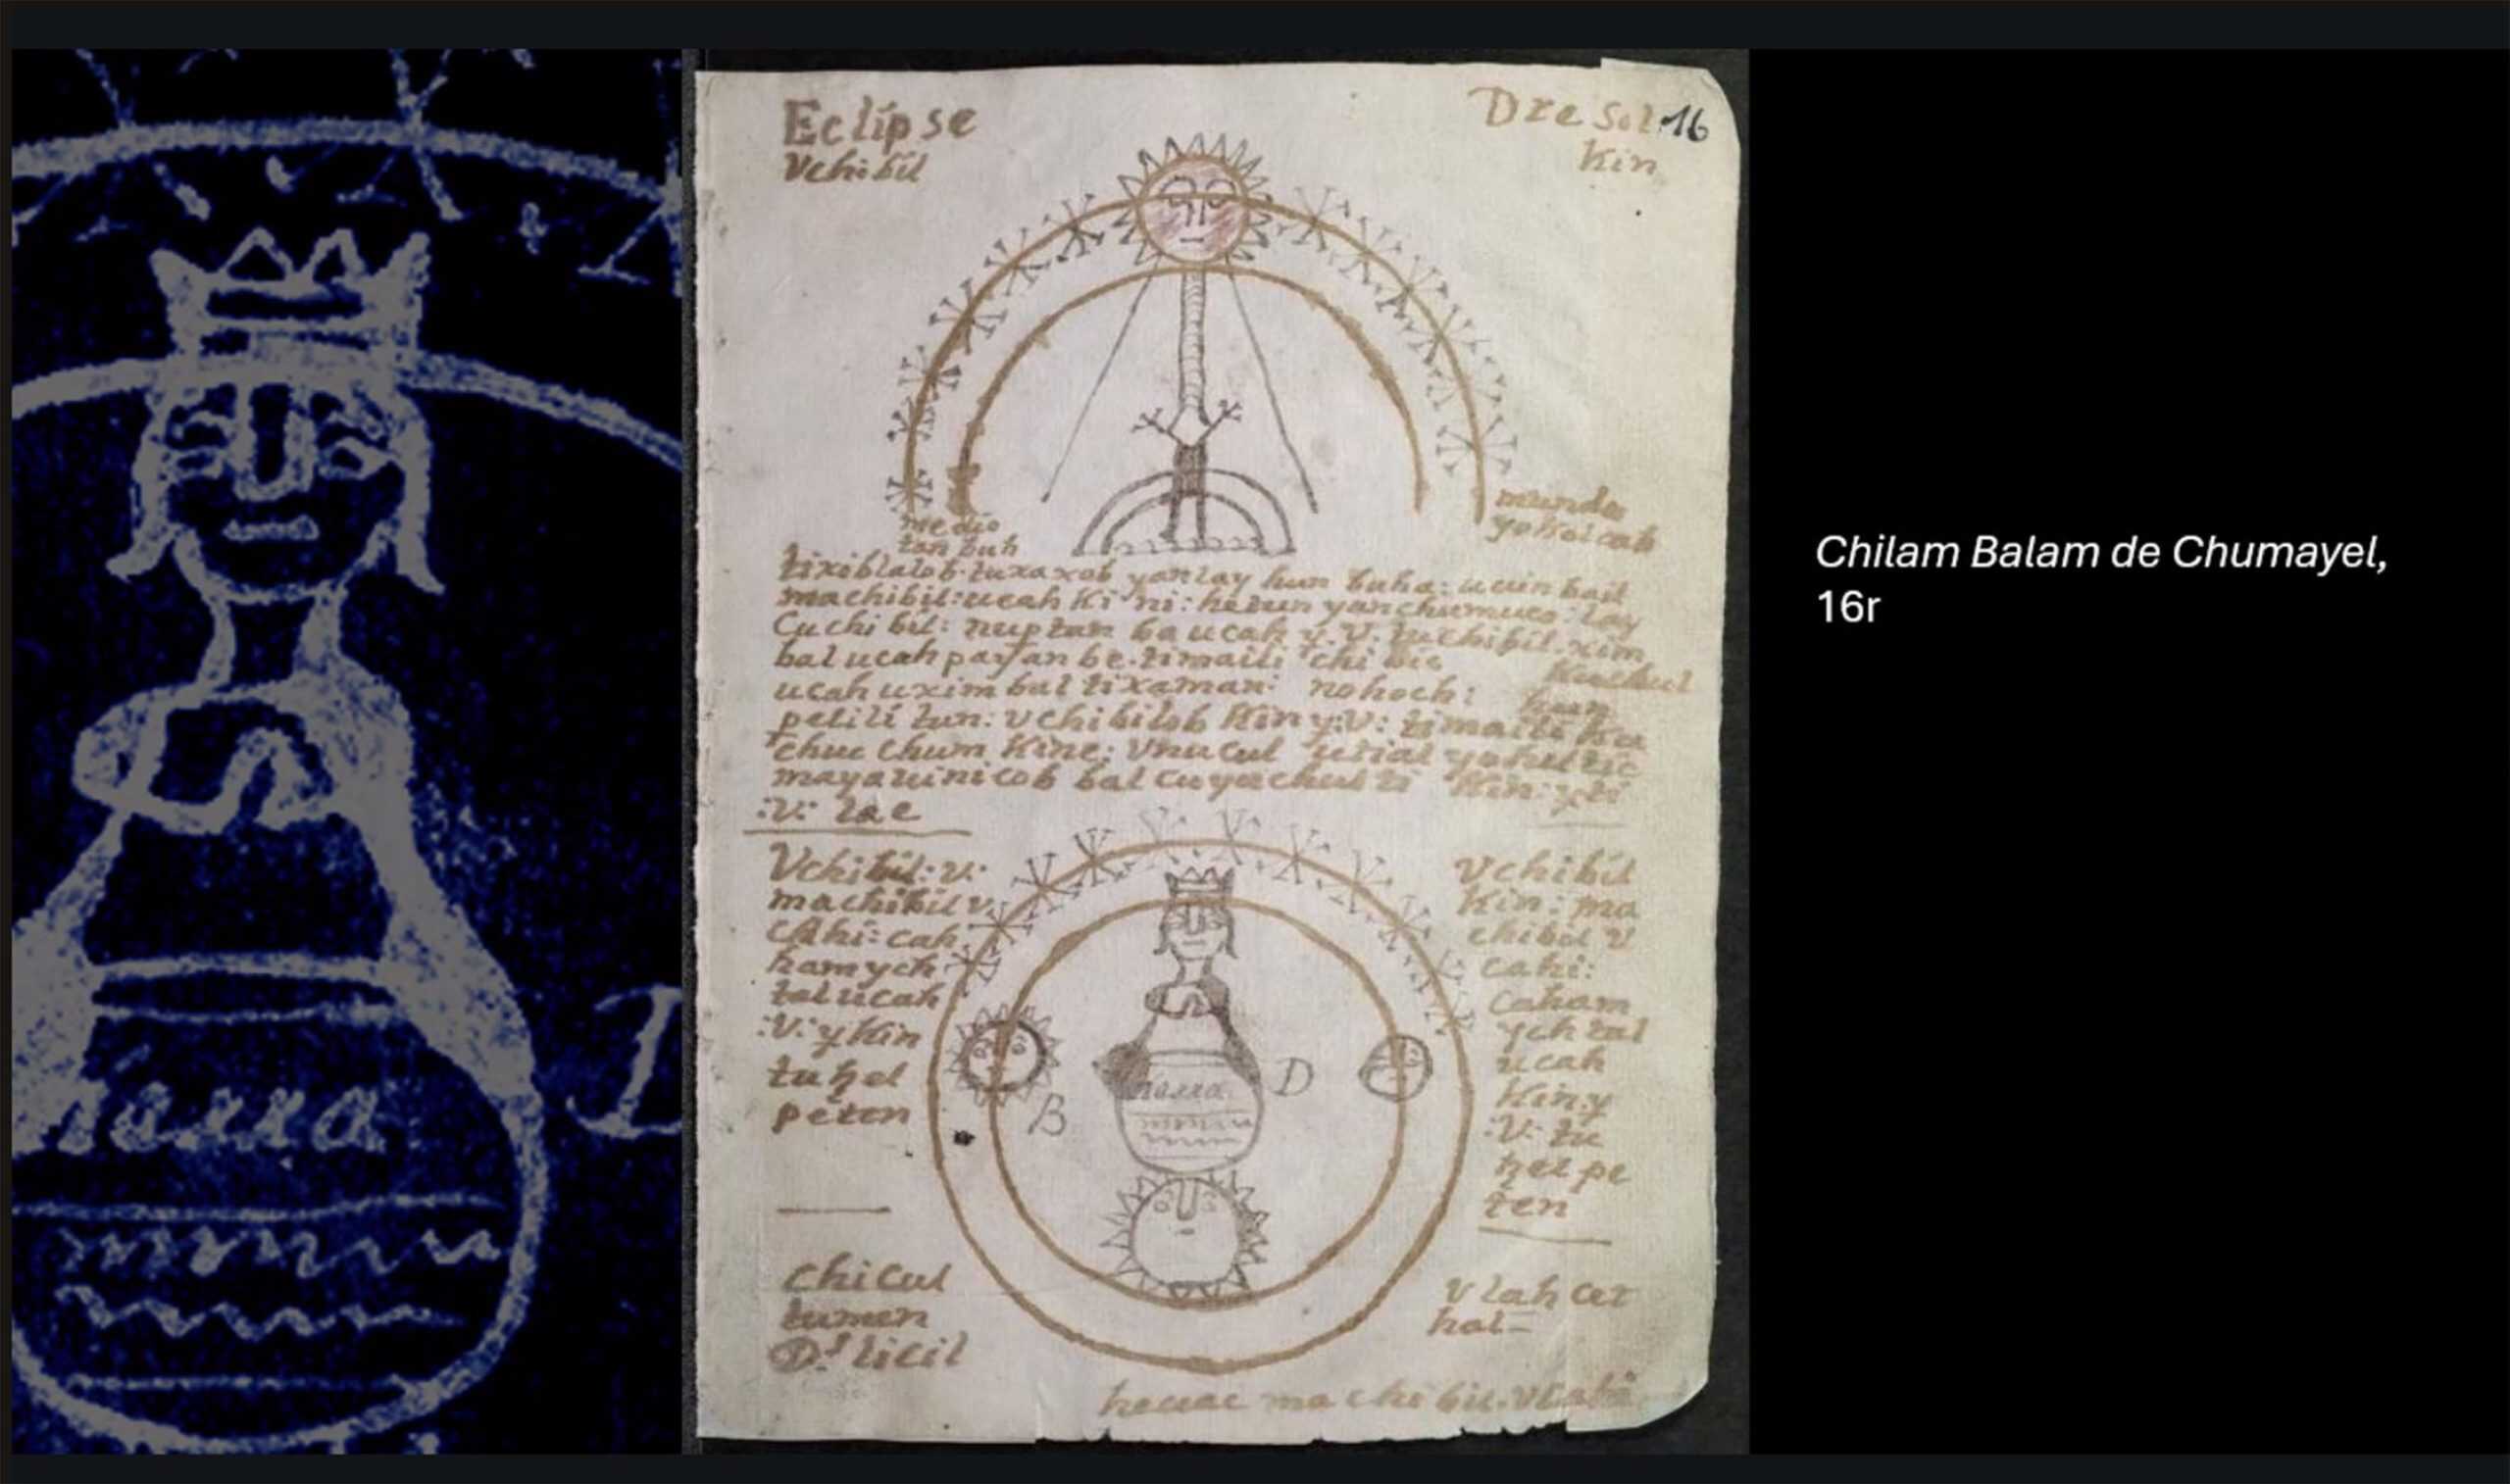 Eclípse
Vchibíl
Dze Sol 16
Kin
medio
tan buh
mundo
yokolcab
tixiblalob. tuxaxob yanlay hun buhe: uuinbail
machibil: ucah Ki ni: hetun yanchumuco: lay
Cuchi bil: nuptan ba ucah y. V. tuchibil. xim
bal ucah payanbe. timaili chi
ucah uximbal tixaman: nohoch:
petili tun: vchibilob Kin y: V: timaili Ku
chuc chum Kine; Vnucul
mayauinicob bal cuyuchul ti Kin: y ti
:V: lae
Vchibil: V:
machibil V
cahi: cah
hamych
tal ucah
:V: y Kin
tu hel
peten
Vchibil
Kin: ma
chibil V
cahi:
caham
ych tal
ucah
Kin y
:V: tu
hel pe
ten
B
D
chicul
tumen
Ds licil
V lah cet
hal-
heuac machibil.
Chilam Balam de Chumayel,
16r